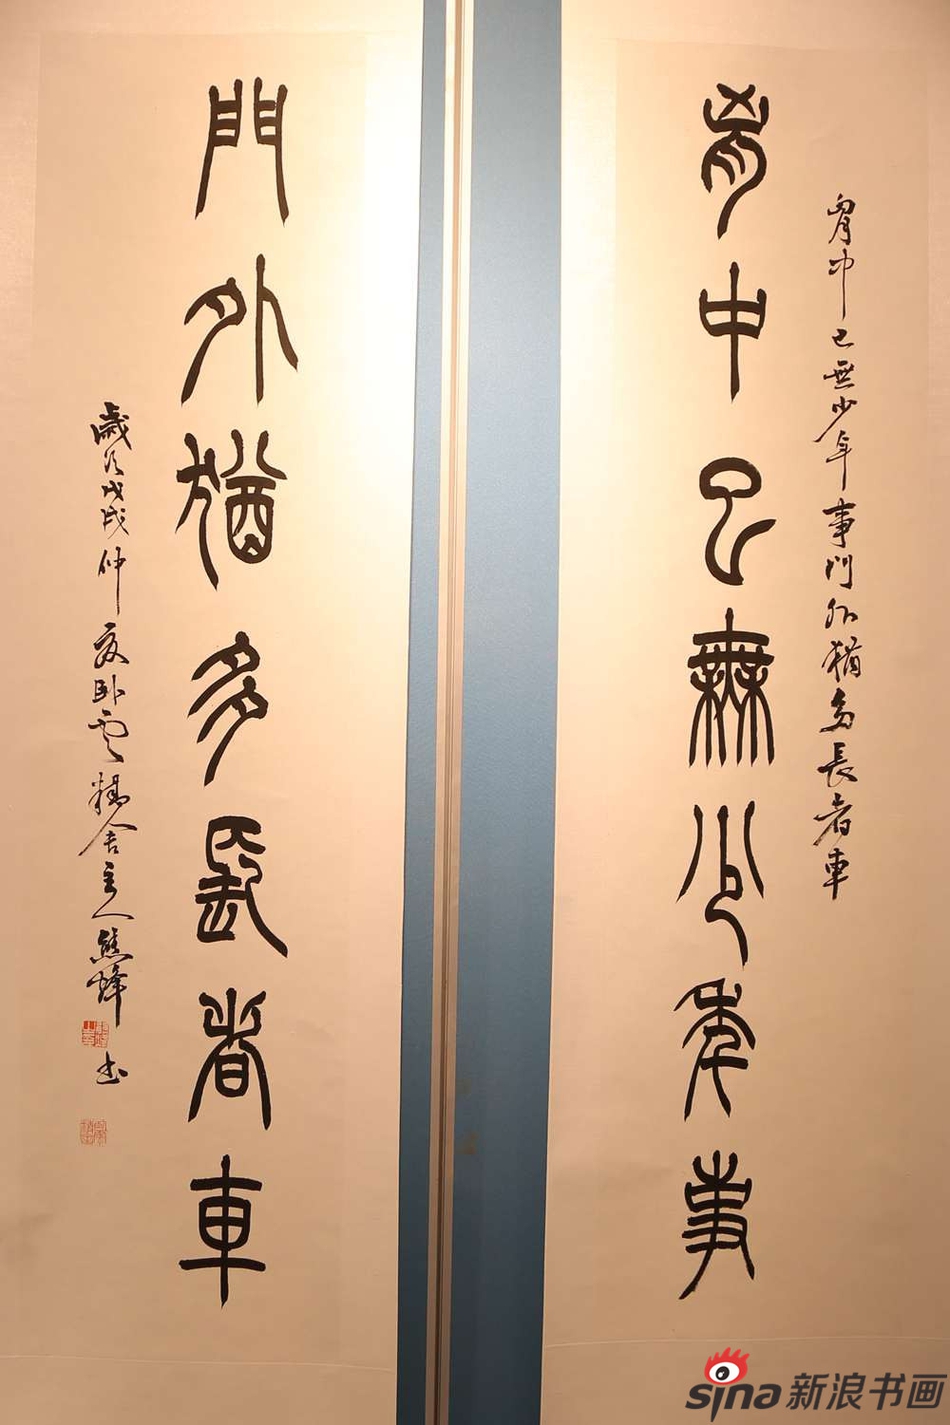 胷中已無少年事門外猶多長者車
胷中已無少年事
門外猶多長者車
歲次戊戌仲夏臥雲精舍主人熊峰書
sina新浪书画